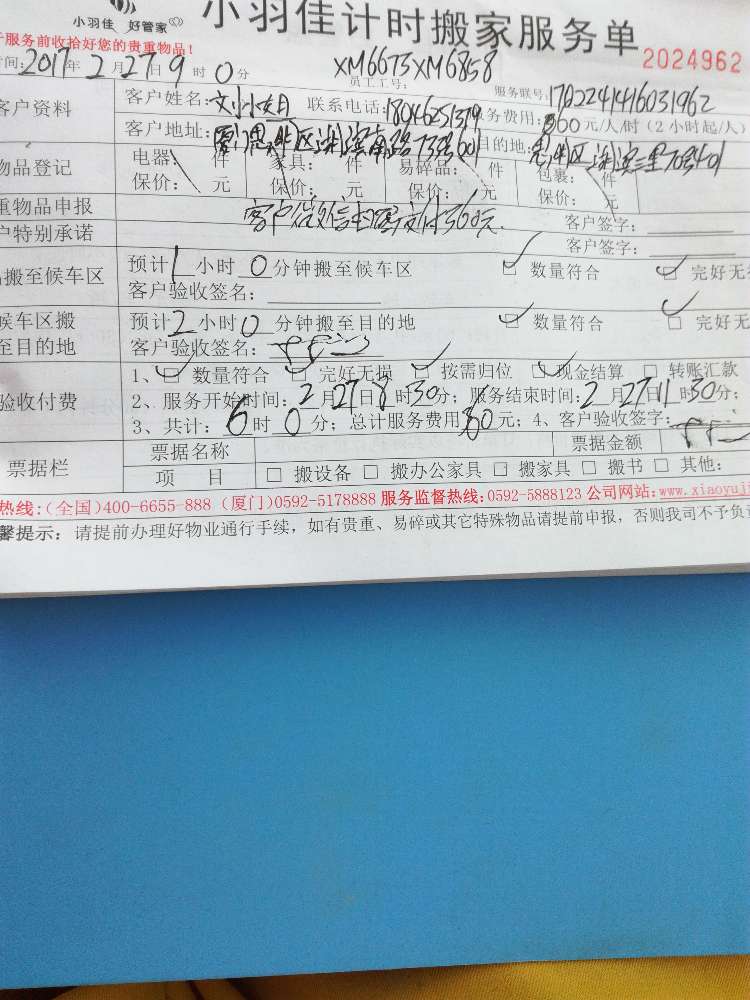 小羽佳 好管家
小羽佳计时搬家服务单
服务前收拾好您的贵重物品！
2024962
间：2017年2月27日9时0分 XM6675XM6858
员工工号： 服务联号：1702241416031962
客户资料 客户姓名： 联系电话：18046251379 务费用：360元/人/时（2小时起/人）
客户地址： 思明区 南路 601 目的地：思明区 三里70号501
物品登记 电器： 件 家具： 件 易碎品： 件 包裹： 件
保价： 元 保价： 元 保价： 元 保价： 元
重物品申报 客户微信扫码支付360元. 客户签字：
户特别承诺 客户签字：
搬至候车区 预计1小时0分钟搬至候车区 数量符合 完好无
客户验收签名：
候车区搬至目的地 预计2小时0分钟搬至目的地 数量符合 完好无
客户验收签名：
验收付费 1、数量符合 完好无损 按需归位 现金结算 转账汇款
2、服务开始时间：2月27日8时30分；服务结束时间：2月27日11时30分；
3、共计：6时0分；总计服务费用360元；4、客户验收签字：
票据栏 票据名称 票据金额
项 目 搬设备 搬办公家具 搬家具 搬书 其他：
热线：（全国）400-6655-888（厦门）0592-5178888 服务监督热线：0592-5888123 公司网站：www.xiaoyuji
馨提示：请提前办理好物业通行手续，如有贵重、易碎或其它特殊物品请提前申报，否则我司不予负